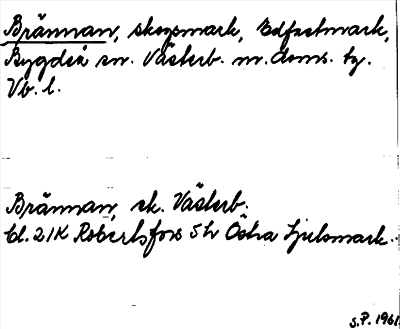 Brännan, skogsmark, Edfastmark,
Bygdeå sn. Västerb. m. doms. tg.
Vb. l.
Brännan, sk. Västerb.
bl. 21K Robertsfors 5h Östra Ljulsmark.
S.P. 1961